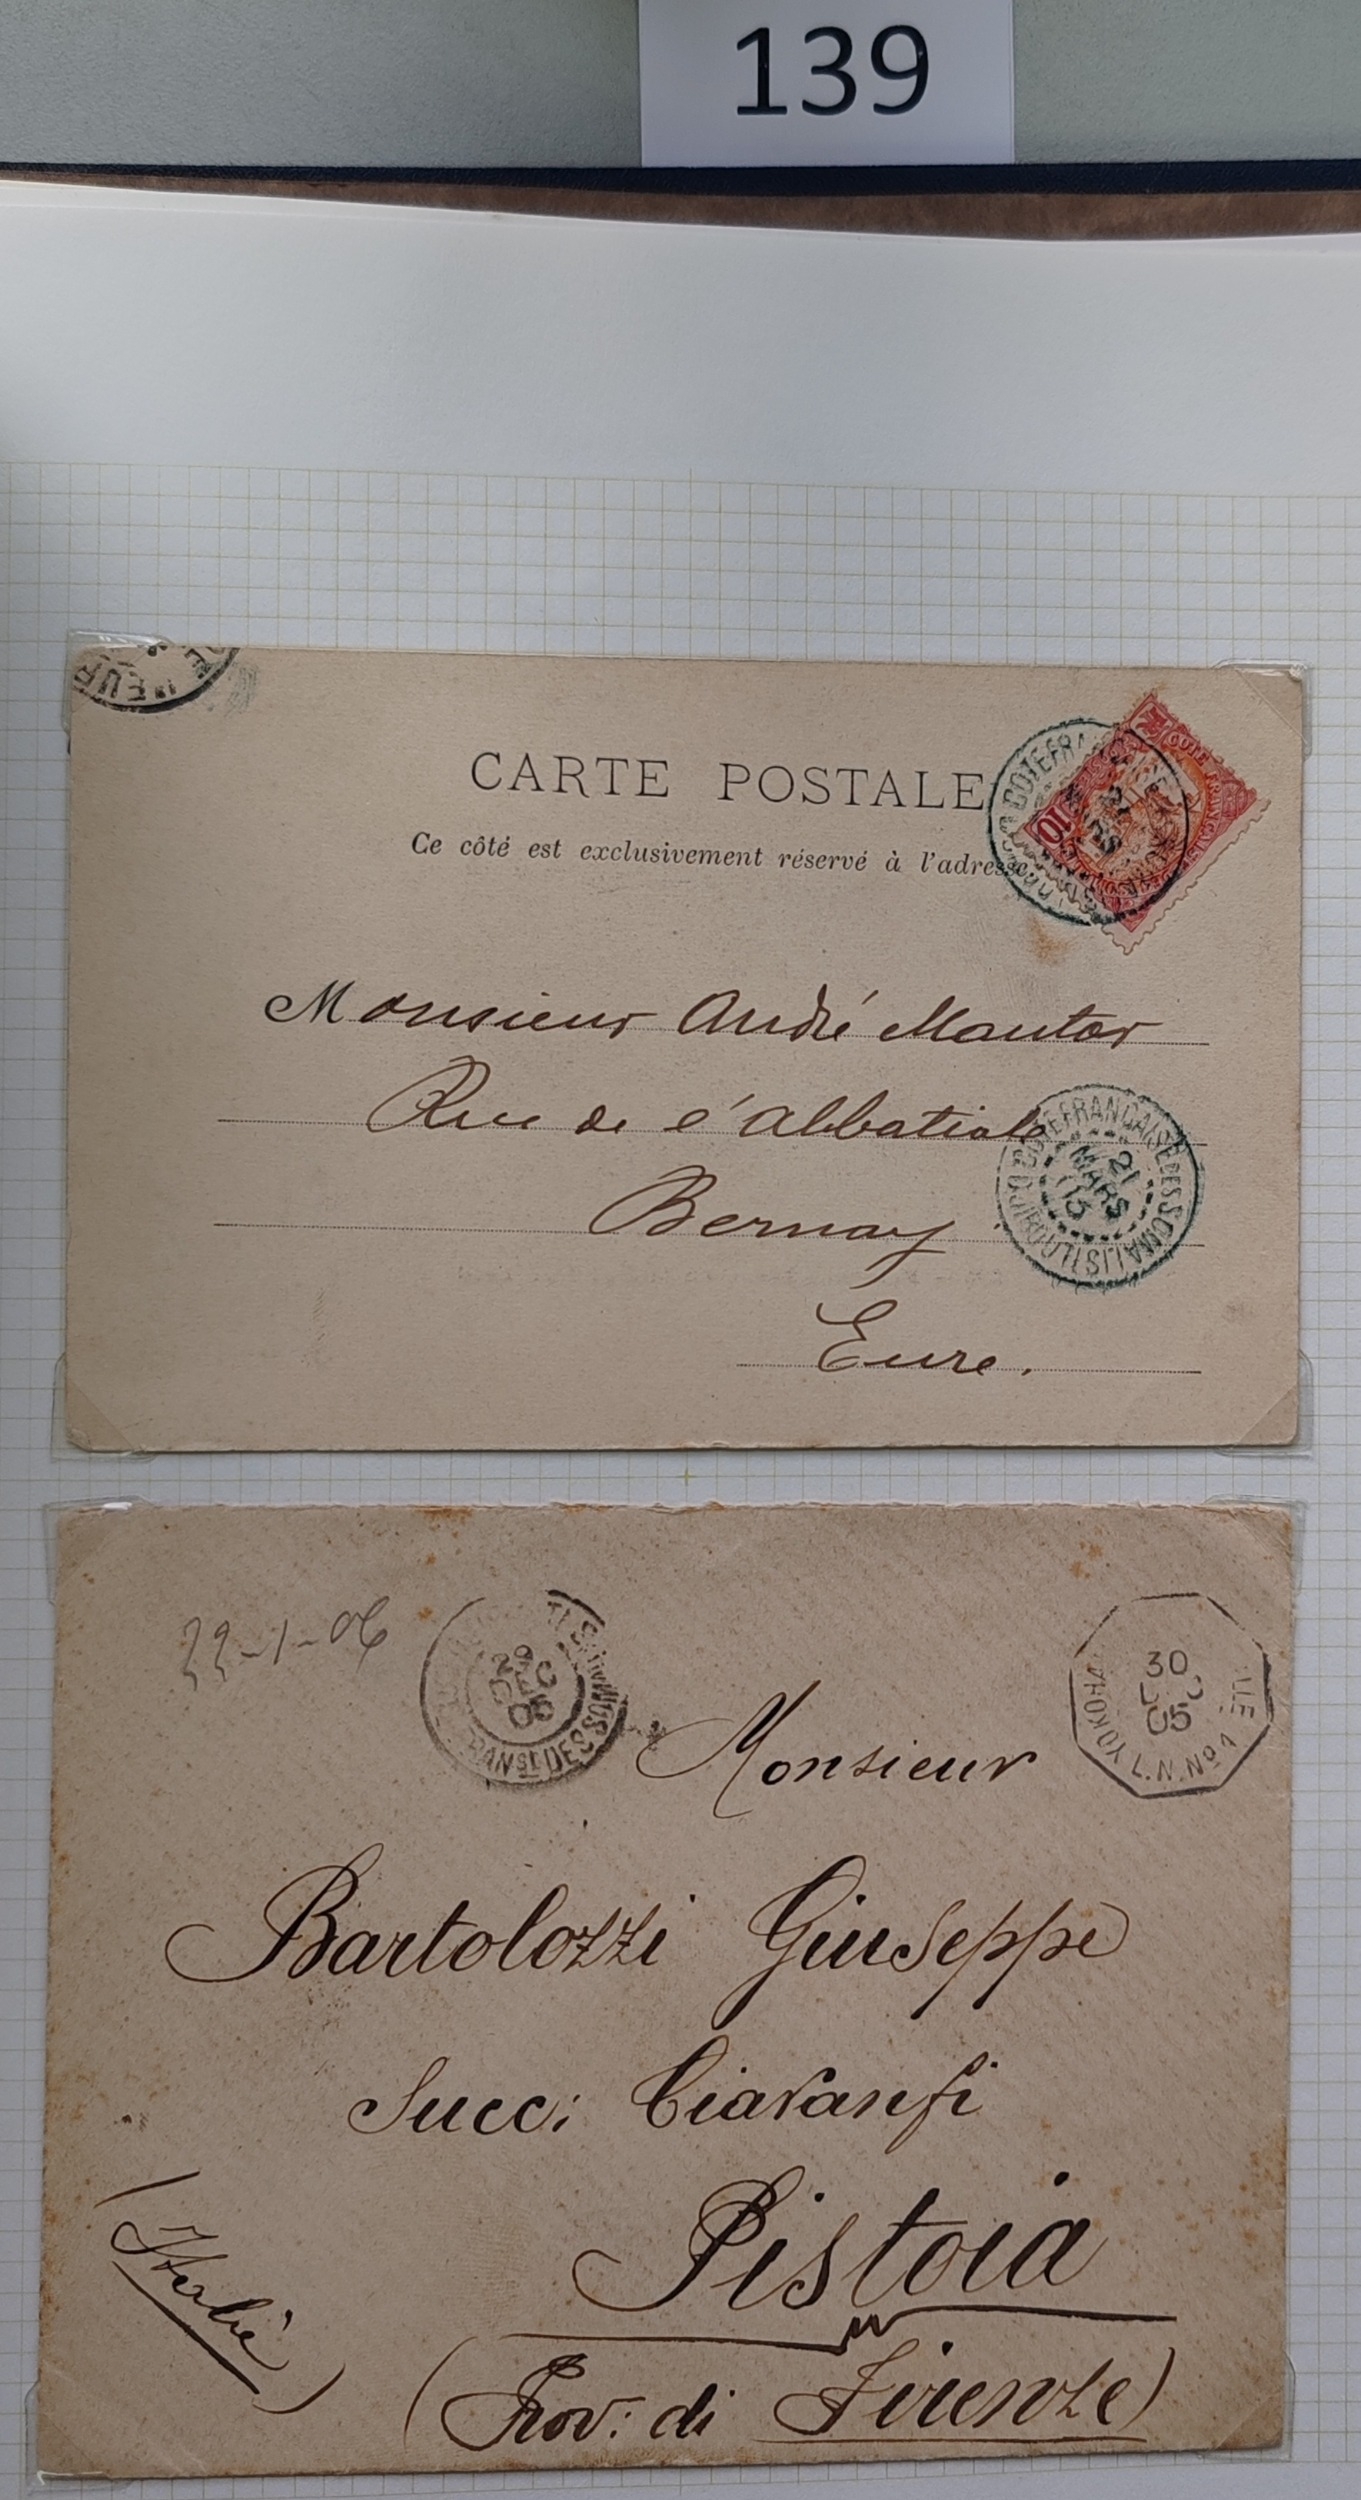 139
DE L'EUR
CARTE POSTALE
Ce côté est exclusivement réservé à l'adresse
COTE FRANÇAISE
10
Monsieur André Mautor
Rue de l'abbatiale
Bernay
Eure.
DJIBOUTI COTE FRANÇAISE DES SOMALIS
21
MARS
03
22-1-06
DES SOMALIS
30
05
YOKOHA
L.N. No 1
Monsieur
Bartolozzi Giuseppe
Succ: Ciavanfi
Pistoia
(Italie)
(Prov: di Firenze)